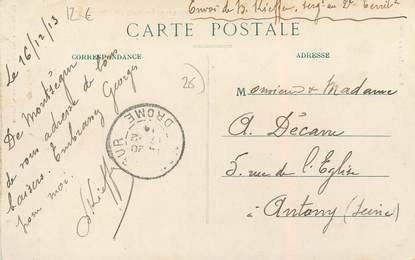 12 €
Envoi de B. Kieffer, sergt au 2e
CARTE POSTALE
CORRESPONDANCE
ADRESSE
Le 16/12/13
De Montségur
je vous adresse de bons
baisers. Embrassez Georges
pour moi.
BKieffer
26
DROME
Monsieur & Madame
A. Décarre
5 rue de l'Eglise
à Antony (Seine)